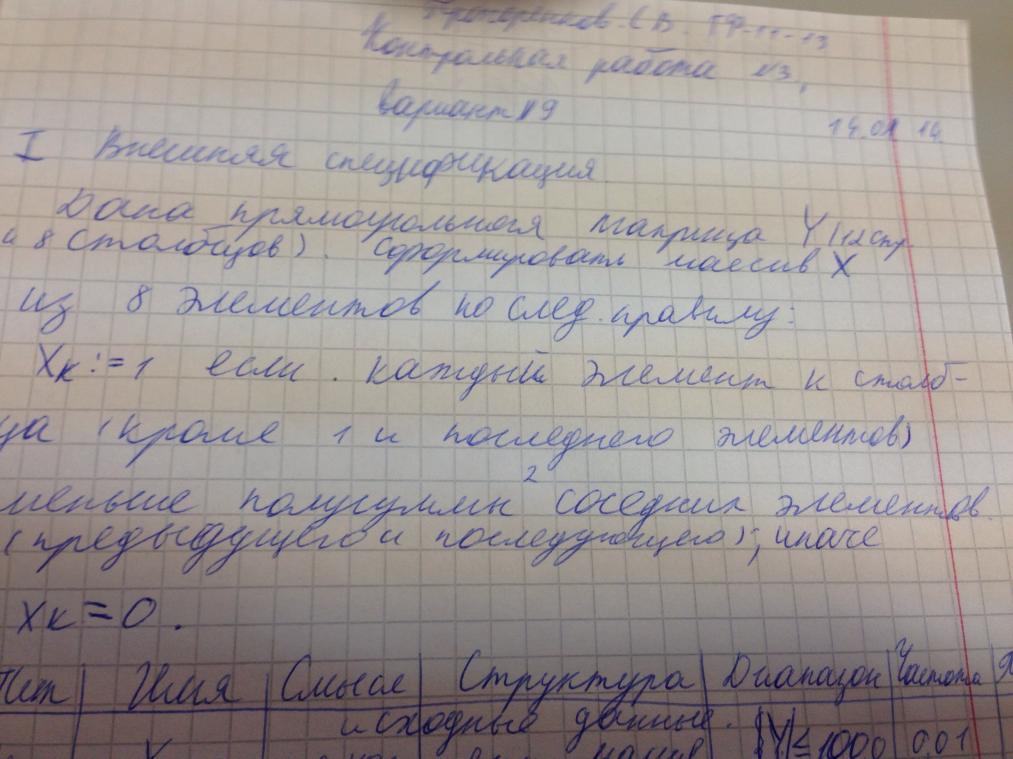 С.В. ГФ-11-13
Контрольная работа №3,
вариант №9
14.01 14.
I Внешняя спецификация
Дана прямоугольная матрица Y (12 стр
и 8 столбцов). Сформировать массив X
из 8 элементов по след. правилу:
Xк := 1 если . каждый элемент к столб-
ца (кроме 1 и последнего элементов)
меньше полусуммы 2 соседних элементов.
(предыдущего и последующего); иначе
Xк = 0 .
Имя Смысл Структура Диапазон Частота
исходные данные.
|Y| ≤ 1000 0.01